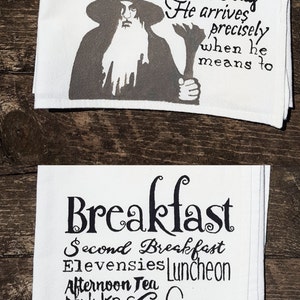 He arrives
precisely
when he
means to
Breakfast
Second Breakfast
Elevensies Luncheon
Afternoon Tea